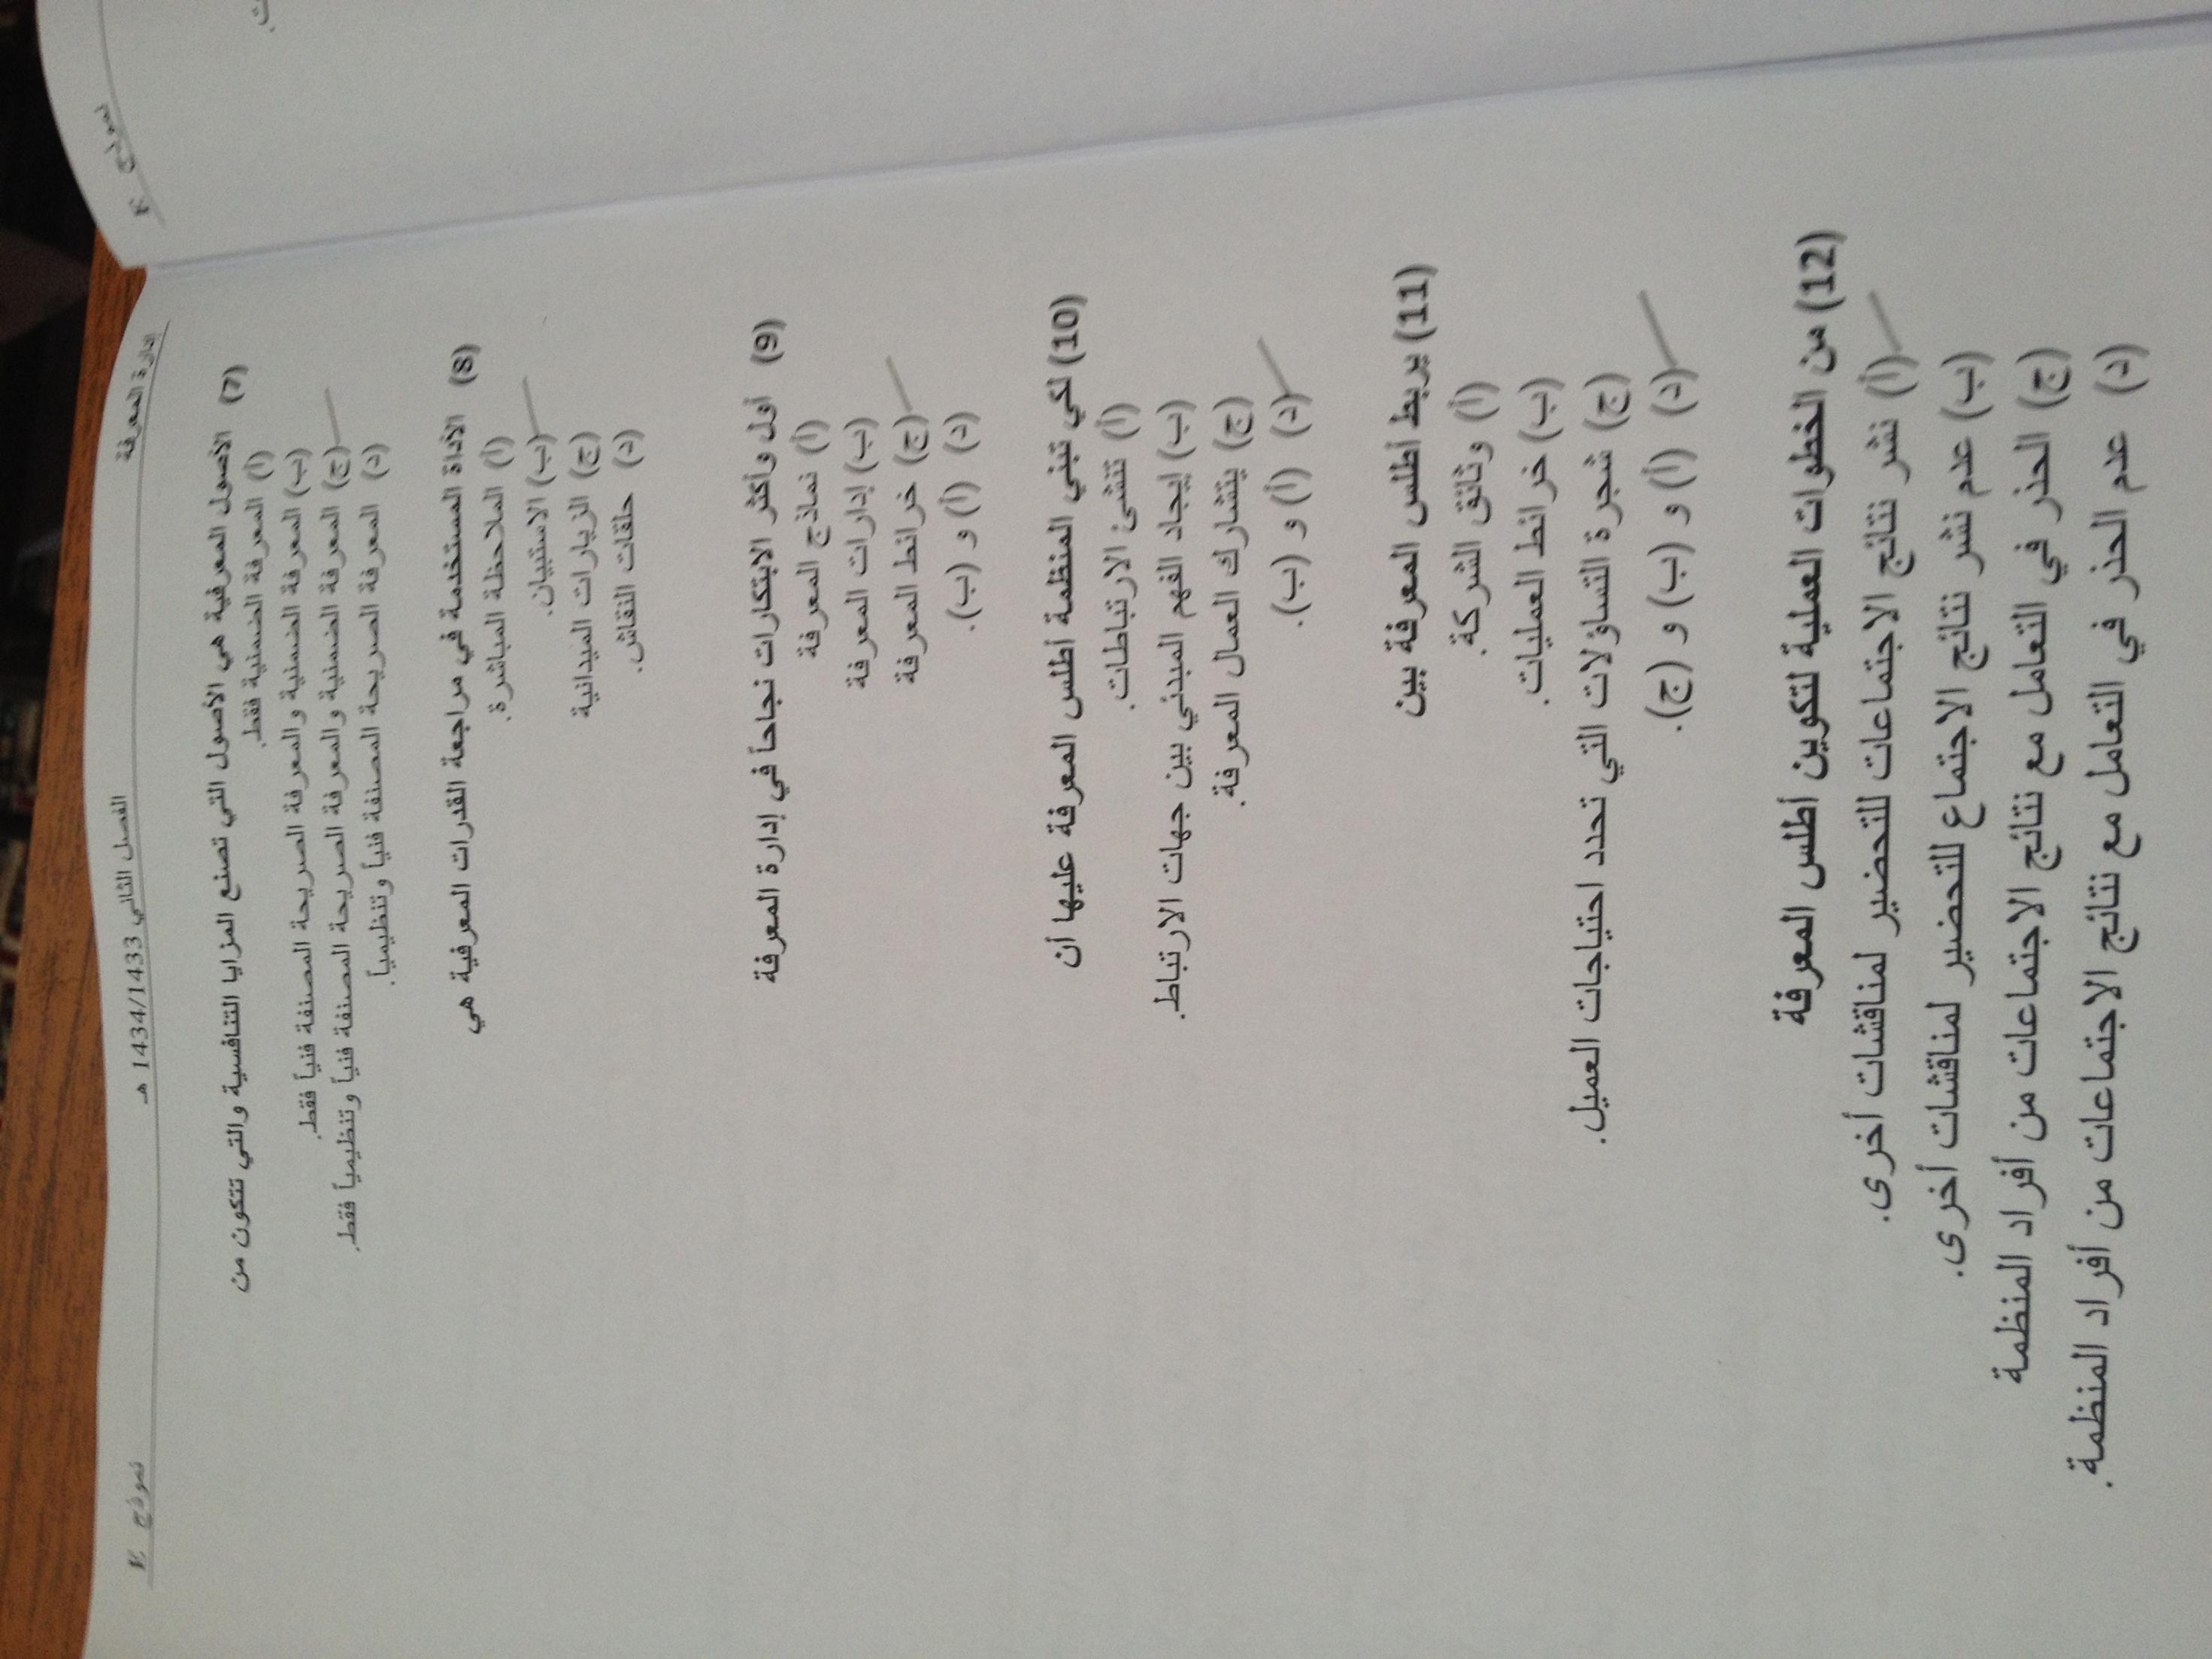 إدارة المعرفة الفصل الثاني 1434/1433 هـ نموذج
(7) الأصول المعرفية هي الأصول التي تصنع المزايا التنافسية والتي تتكون من
(أ) المعرفة الضمنية فقط.
(ب) المعرفة الضمنية والمعرفة الصريحة المصنفة فنياً فقط.
(ج) المعرفة الضمنية والمعرفة الصريحة المصنفة فنياً وتنظيمياً فقط.
(د) المعرفة الصريحة المصنفة فنياً وتنظيمياً.
(8) الأداة المستخدمة في مراجعة القدرات المعرفية هي
(أ) الملاحظة المباشرة.
(ب) الاستبيان.
(ج) الزيارات الميدانية
(د) حلقات النقاش.
(9) أول وأكثر الابتكارات نجاحاً في إدارة المعرفة
(أ) نماذج المعرفة
(ب) إدارات المعرفة
(ج) خرائط المعرفة
(د) (أ) و (ب).
(10) لكي تبني المنظمة أطلس المعرفة عليها أن
(أ) تنشئ الارتباطات.
(ب) إيجاد الفهم المبدئي بين جهات الارتباط.
(ج) يتشارك العمال المعرفة.
(د) (أ) و (ب).
(11) يربط أطلس المعرفة بين
(أ) وثائق الشركة.
(ب) خرائط العمليات.
(ج) شجرة التساؤلات التي تحدد احتياجات العميل.
(د) (أ) و (ب) و (ج).
(12) من الخطوات العملية لتكوين أطلس المعرفة
(أ) نشر نتائج الاجتماعات للتحضير لمناقشات أخرى.
(ب) عدم نشر نتائج الاجتماع للتحضير لمناقشات أخرى.
(ج) الحذر في التعامل مع نتائج الاجتماعات من أفراد المنظمة
(د) عدم الحذر في التعامل مع نتائج الاجتماعات من أفراد المنظمة.
نموذج